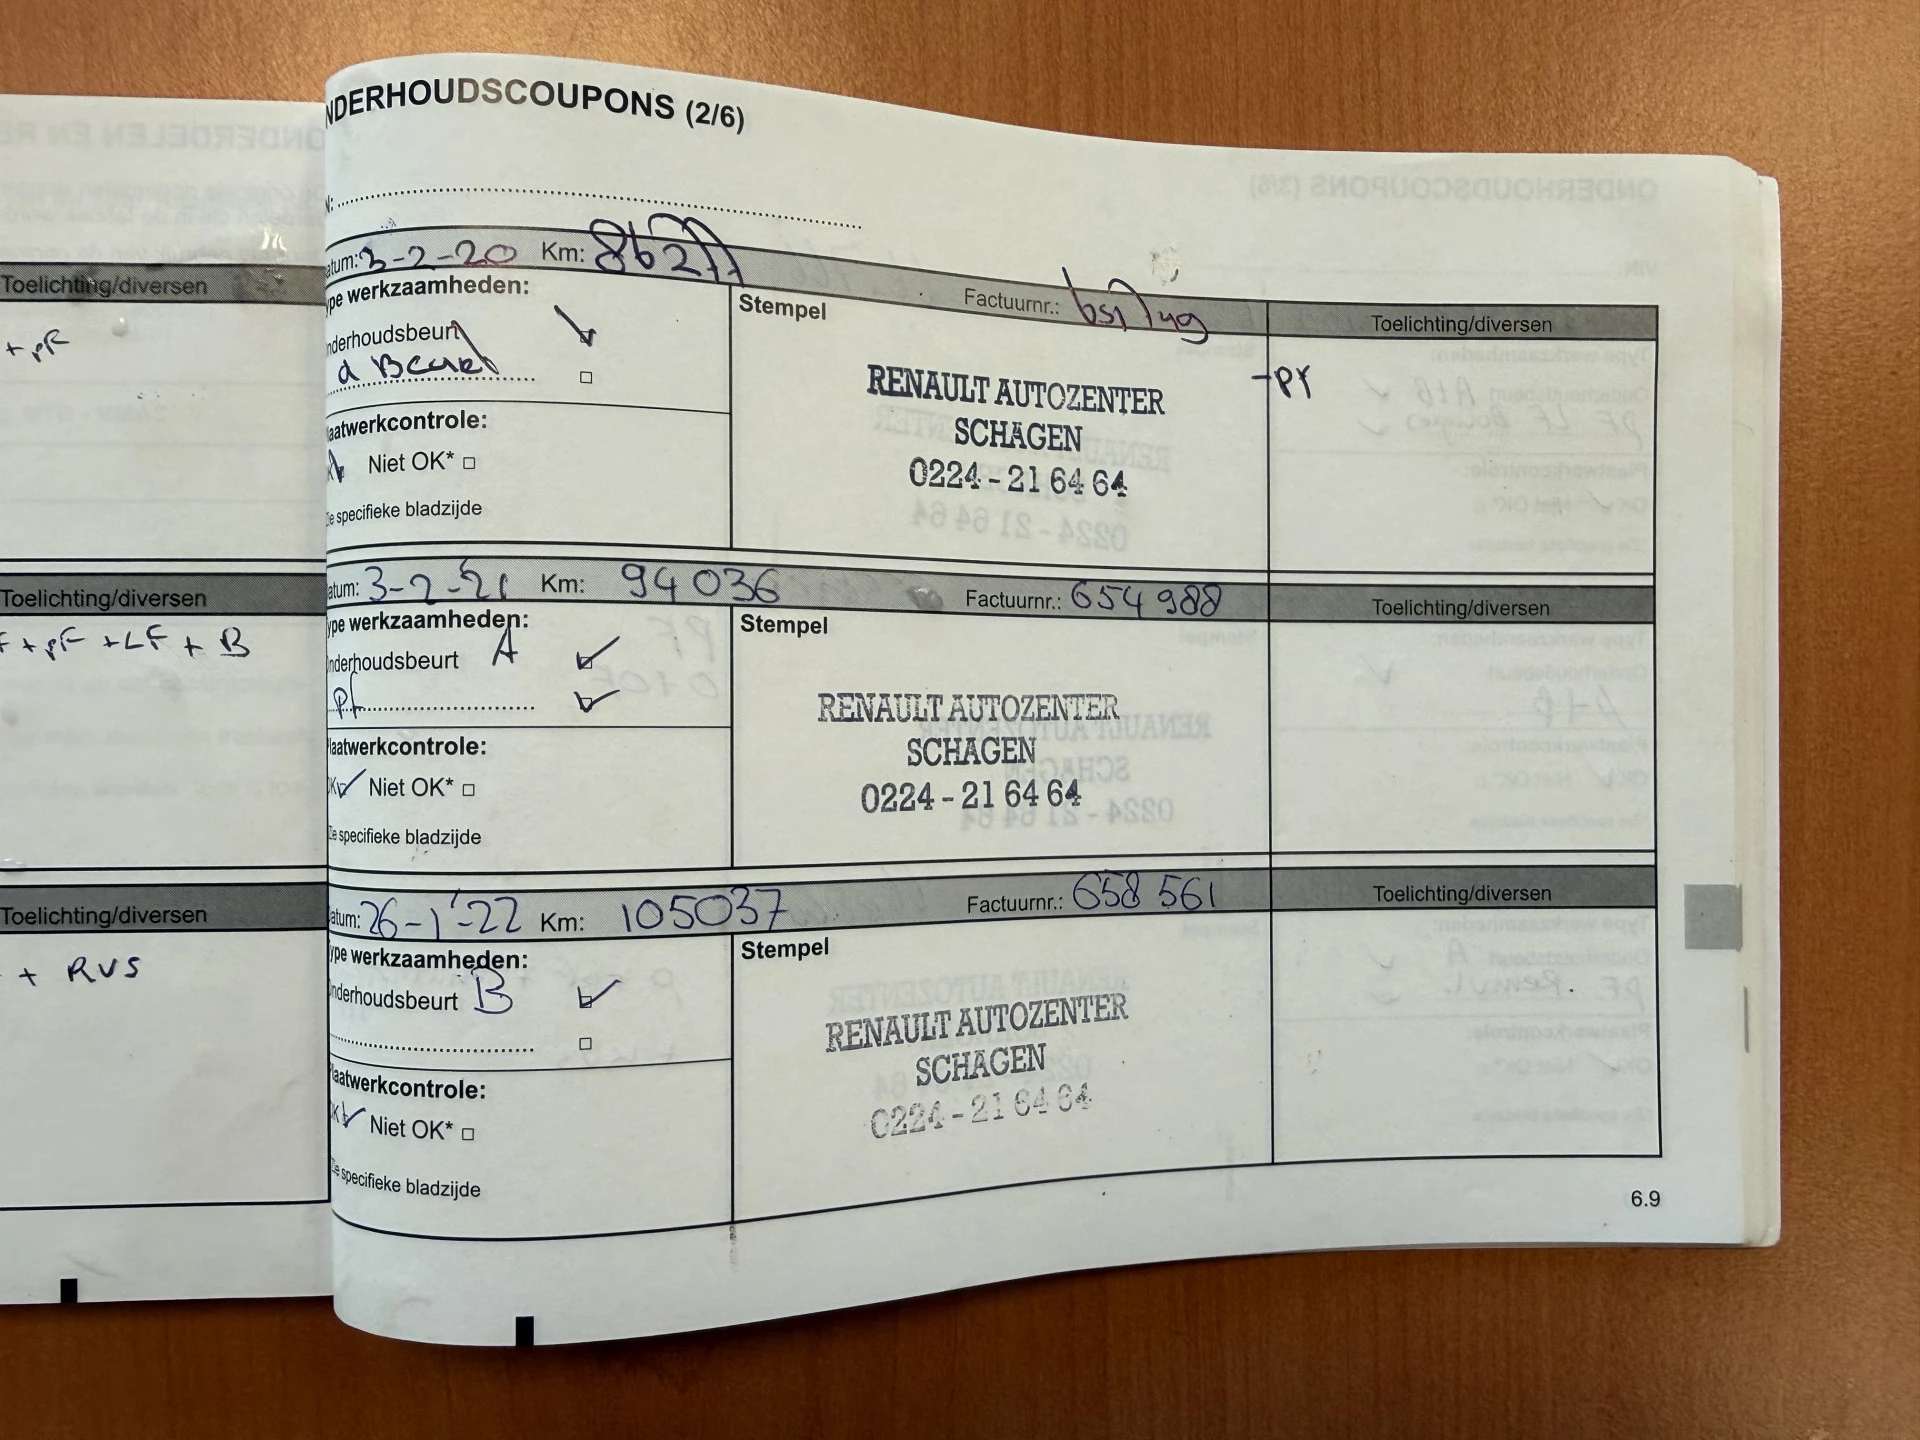 Toelichting/diversen
+ pF
Toelichting/diversen
+ pF + LF + B
Toelichting/diversen
+ RVS
NDERHOUDSCOUPONS (2/6)
N:
atum: 3-2-20 Km: 86277 Factuurnr.: Toelichting/diversen
ype werkzaamheden:
Stempel
nderhoudsbeurt
a Beurt
laatwerkcontrole:
K Niet OK*
Zie specifieke bladzijde
RENAULT AUTOZENTER
SCHAGEN
0224 - 21 64 64
-PF
atum: 3-2-21 Km: 94 036 Factuurnr.: 654 988 Toelichting/diversen
ype werkzaamheden:
Stempel
nderhoudsbeurt A
pf
laatwerkcontrole:
OK Niet OK*
Zie specifieke bladzijde
RENAULT AUTOZENTER
SCHAGEN
0224 - 21 64 64
atum: 26-1-22 Km: 105037 Factuurnr.: 658 561 Toelichting/diversen
ype werkzaamheden:
Stempel
nderhoudsbeurt B
laatwerkcontrole:
OK Niet OK*
Zie specifieke bladzijde
RENAULT AUTOZENTER
SCHAGEN
0224 - 21 64 64
6.9